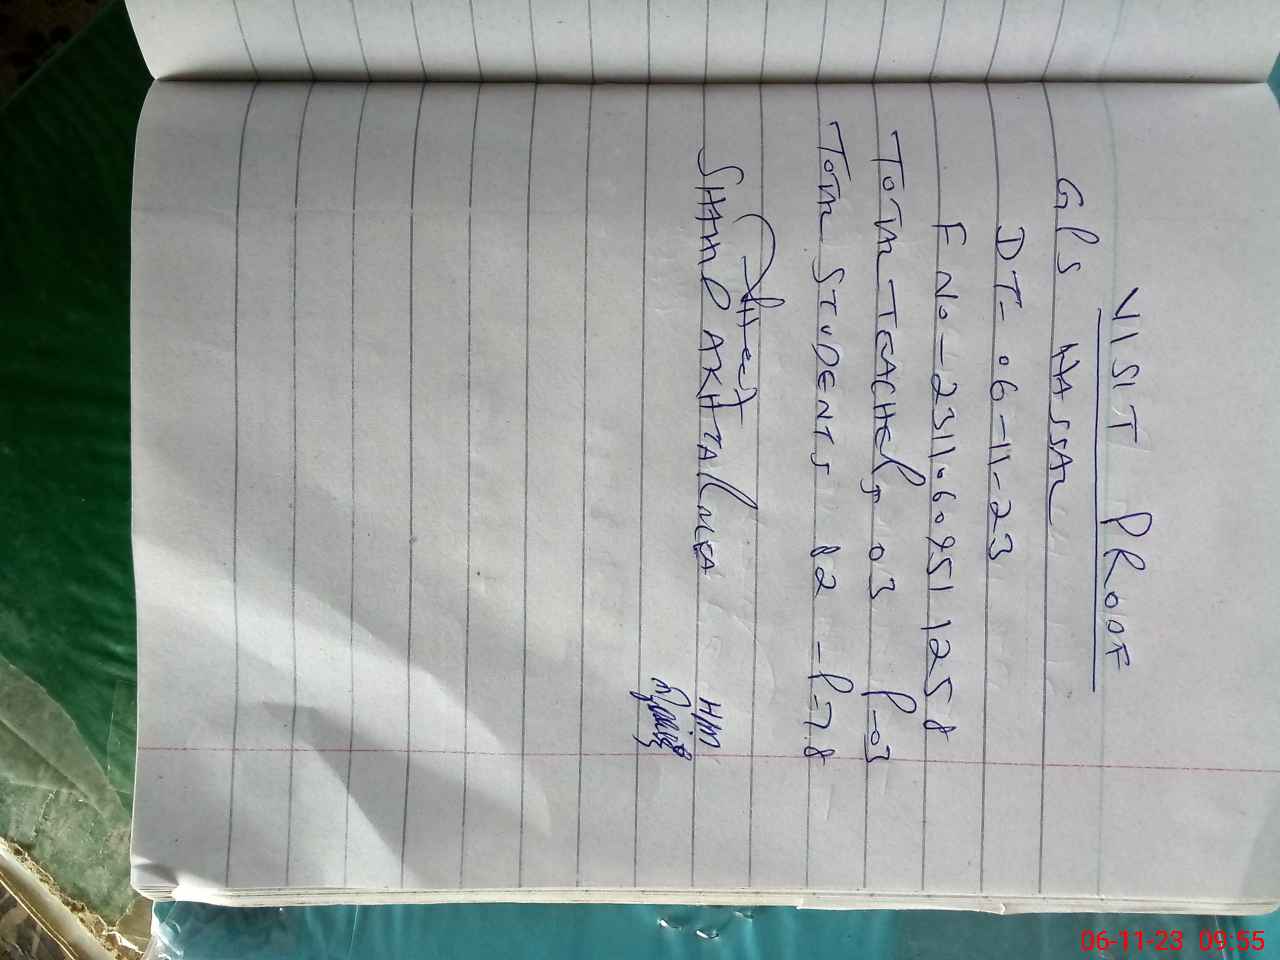 VISIT PROOF
GPS HASSAL
DT- 06-11-23
F No- 23110609511258
TOTAL TEACHERS 03 P-03
TOTAL STUDENTS 82 - P-78
SHAMO AKHTAR MEA HM
06-11-23 09:55